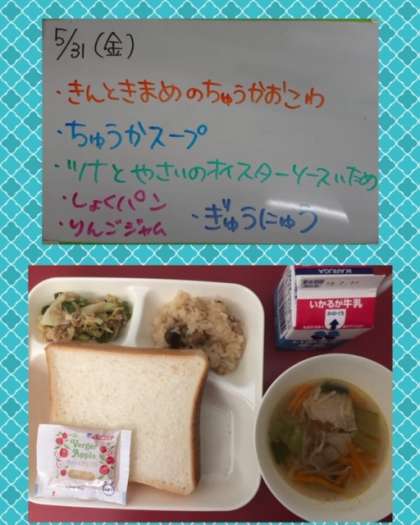 5/31(金)
・きんときまめのちゅうかおこわ
・ちゅうかスープ
・ツナとやさいのオイスターソースいため
・しょくパン
・りんごジャム ・ぎゅうにゅう
いかるが牛乳
Verger
Apple